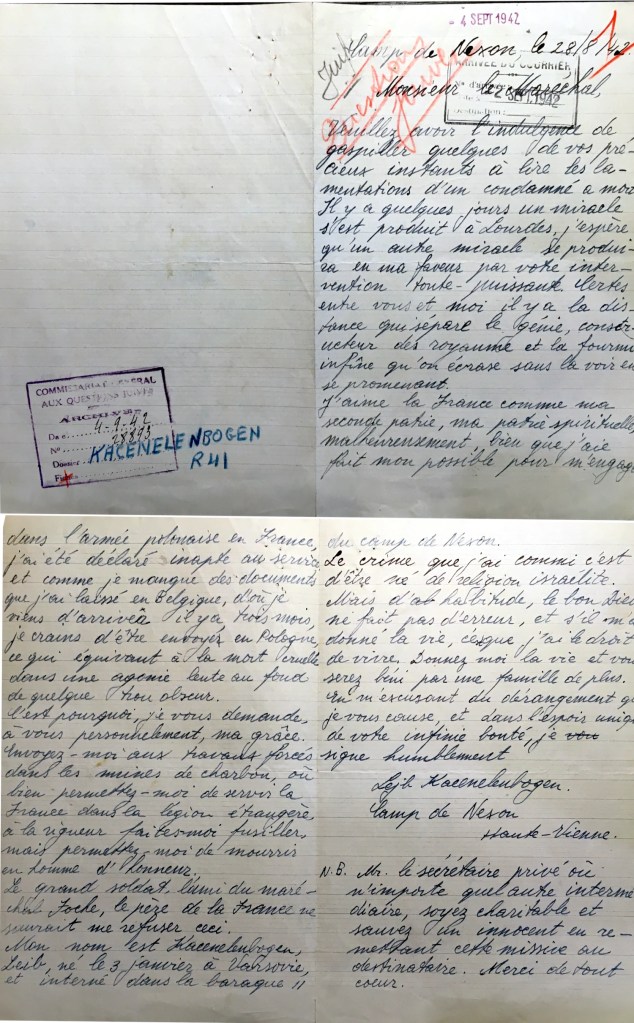 4 SEPT 1942
Camp de Nexon, le 28/8/42.
Juif
Questions
juives
ARRIVÉE DU COURRIER
2 SEPT 1942
Monsieur le Maréchal,
Veuillez avoir l'indulgence de
gaspiller quelques de vos pré-
cieux instants à lire les la-
mentations d'un condamné a mor
Il y a quelques jours un miracle
s'est produit à Lourdes, j'espère
qu'un autre miracle se produi-
ra en ma faveur par votre inter-
vention toute-puissante. Certes
entre vous et moi il y a la dis-
tance qui sépare le génie, constr-
ucteur des royaume et la fourmi
infine qu'on écrase sans la voir en
se promenant.
J'aime la France comme ma
seconde patrie, ma patrie spirituelle
malheureusement, bien que j'aie
fait mon possible pour m'engage
COMMISSARIAT GÉNÉRAL
AUX QUESTIONS JUIVES
ARCHIVES
Date 4-9-42
No 28893
Dossier
KACENELENBOGEN
R41
dans l'armée polonaise en France,
j'ai été déclaré inapte au service
et comme je manque des documents
que j'ai laissé en Belgique, d'où je
viens d'arrivéà il y a trois mois,
je crains d'être envoyer en Pologne,
ce qui équivant à la mort cruelle
dans une agonie lente au fond
de quelque trou obscur.
C'est pourquoi, je vous demande,
à vous personnelement, ma grâce.
Envoyez-moi aux travaus forcés
dans les mines de charbon, où
bien permettez-moi de servir la
France dans la légion étrangère,
à la rigueur faites-moi fusiller
mais permettez-moi de mourrir
en homme d'honneur.
Le grand soldat, l'ami du maré-
chal Foche, le père de la France ne
saurait me refuser ceci.
Mon nom est Kacenelenbogen,
Leib, né le 3 janvier à Varsovie,
et interné dans la baraque 11
du camp de Nexon.
Le crime que j'ai commi c'est
d'être né de religion israélite.
Mais d'ab habitude, le bon Dieu
ne fait pas d'erreur, et s'il m'a
donné la vie, c'esque j'ai le droit
de vivre. Donnez moi la vie et vou
serez béni par une famille de plus.
En m'excusant du dérangement qu
je vous cause, et dans l'espoir uniqu
de votre infinie bonté, je vou
signe humblement
Lejb Kacenelenbogen.
Camp de Nexon
Haute-Vienne.
N.B. Mr. le secrétaire privé où
n'importe quel autre intermé
diaire, soyez charitable et
sauvez un innocent en re-
mettant cette missive au
destinataire. Merci de tout
coeur.